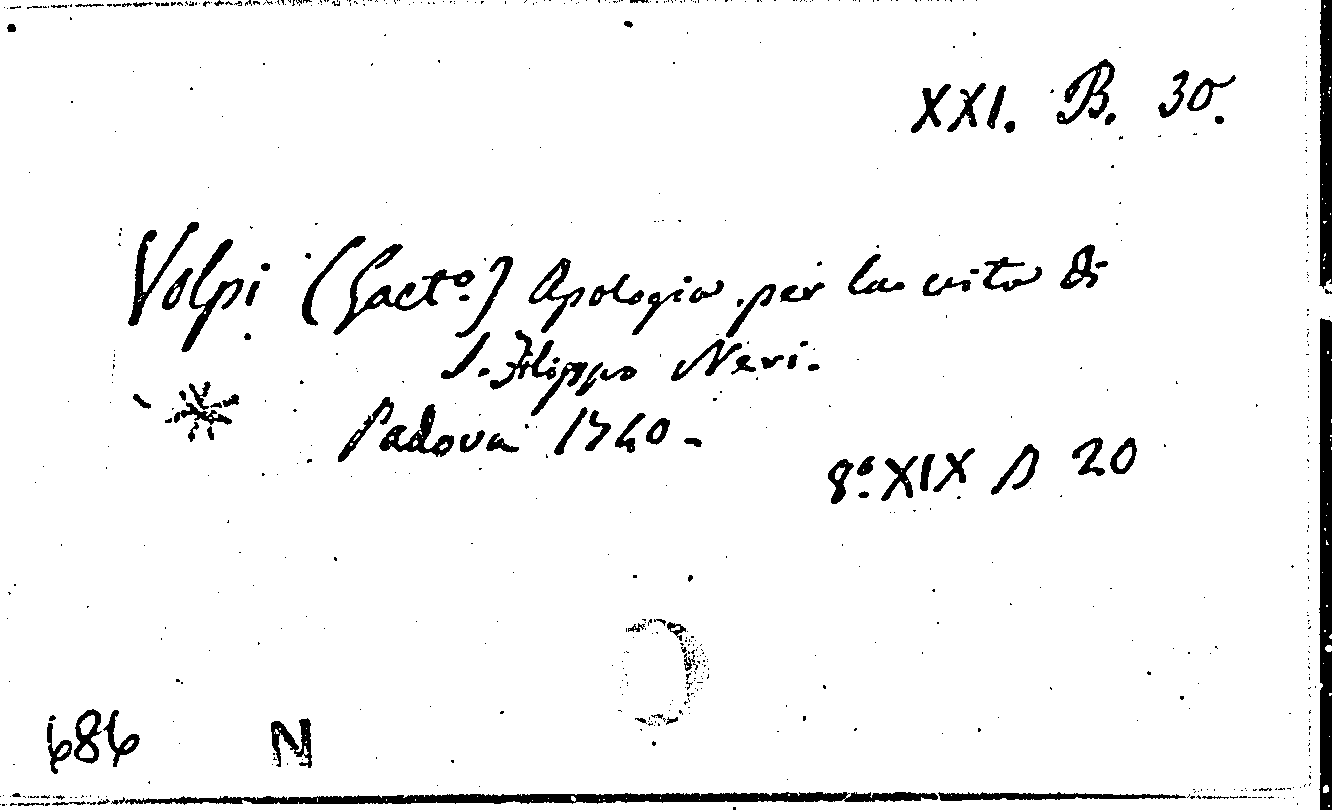 XXI. B. 30.
Volpi (Gaet.º) Apologia per la vita di
S. Filippo Neri.
Padova 1740 -
8.º XIX D 20
686 N